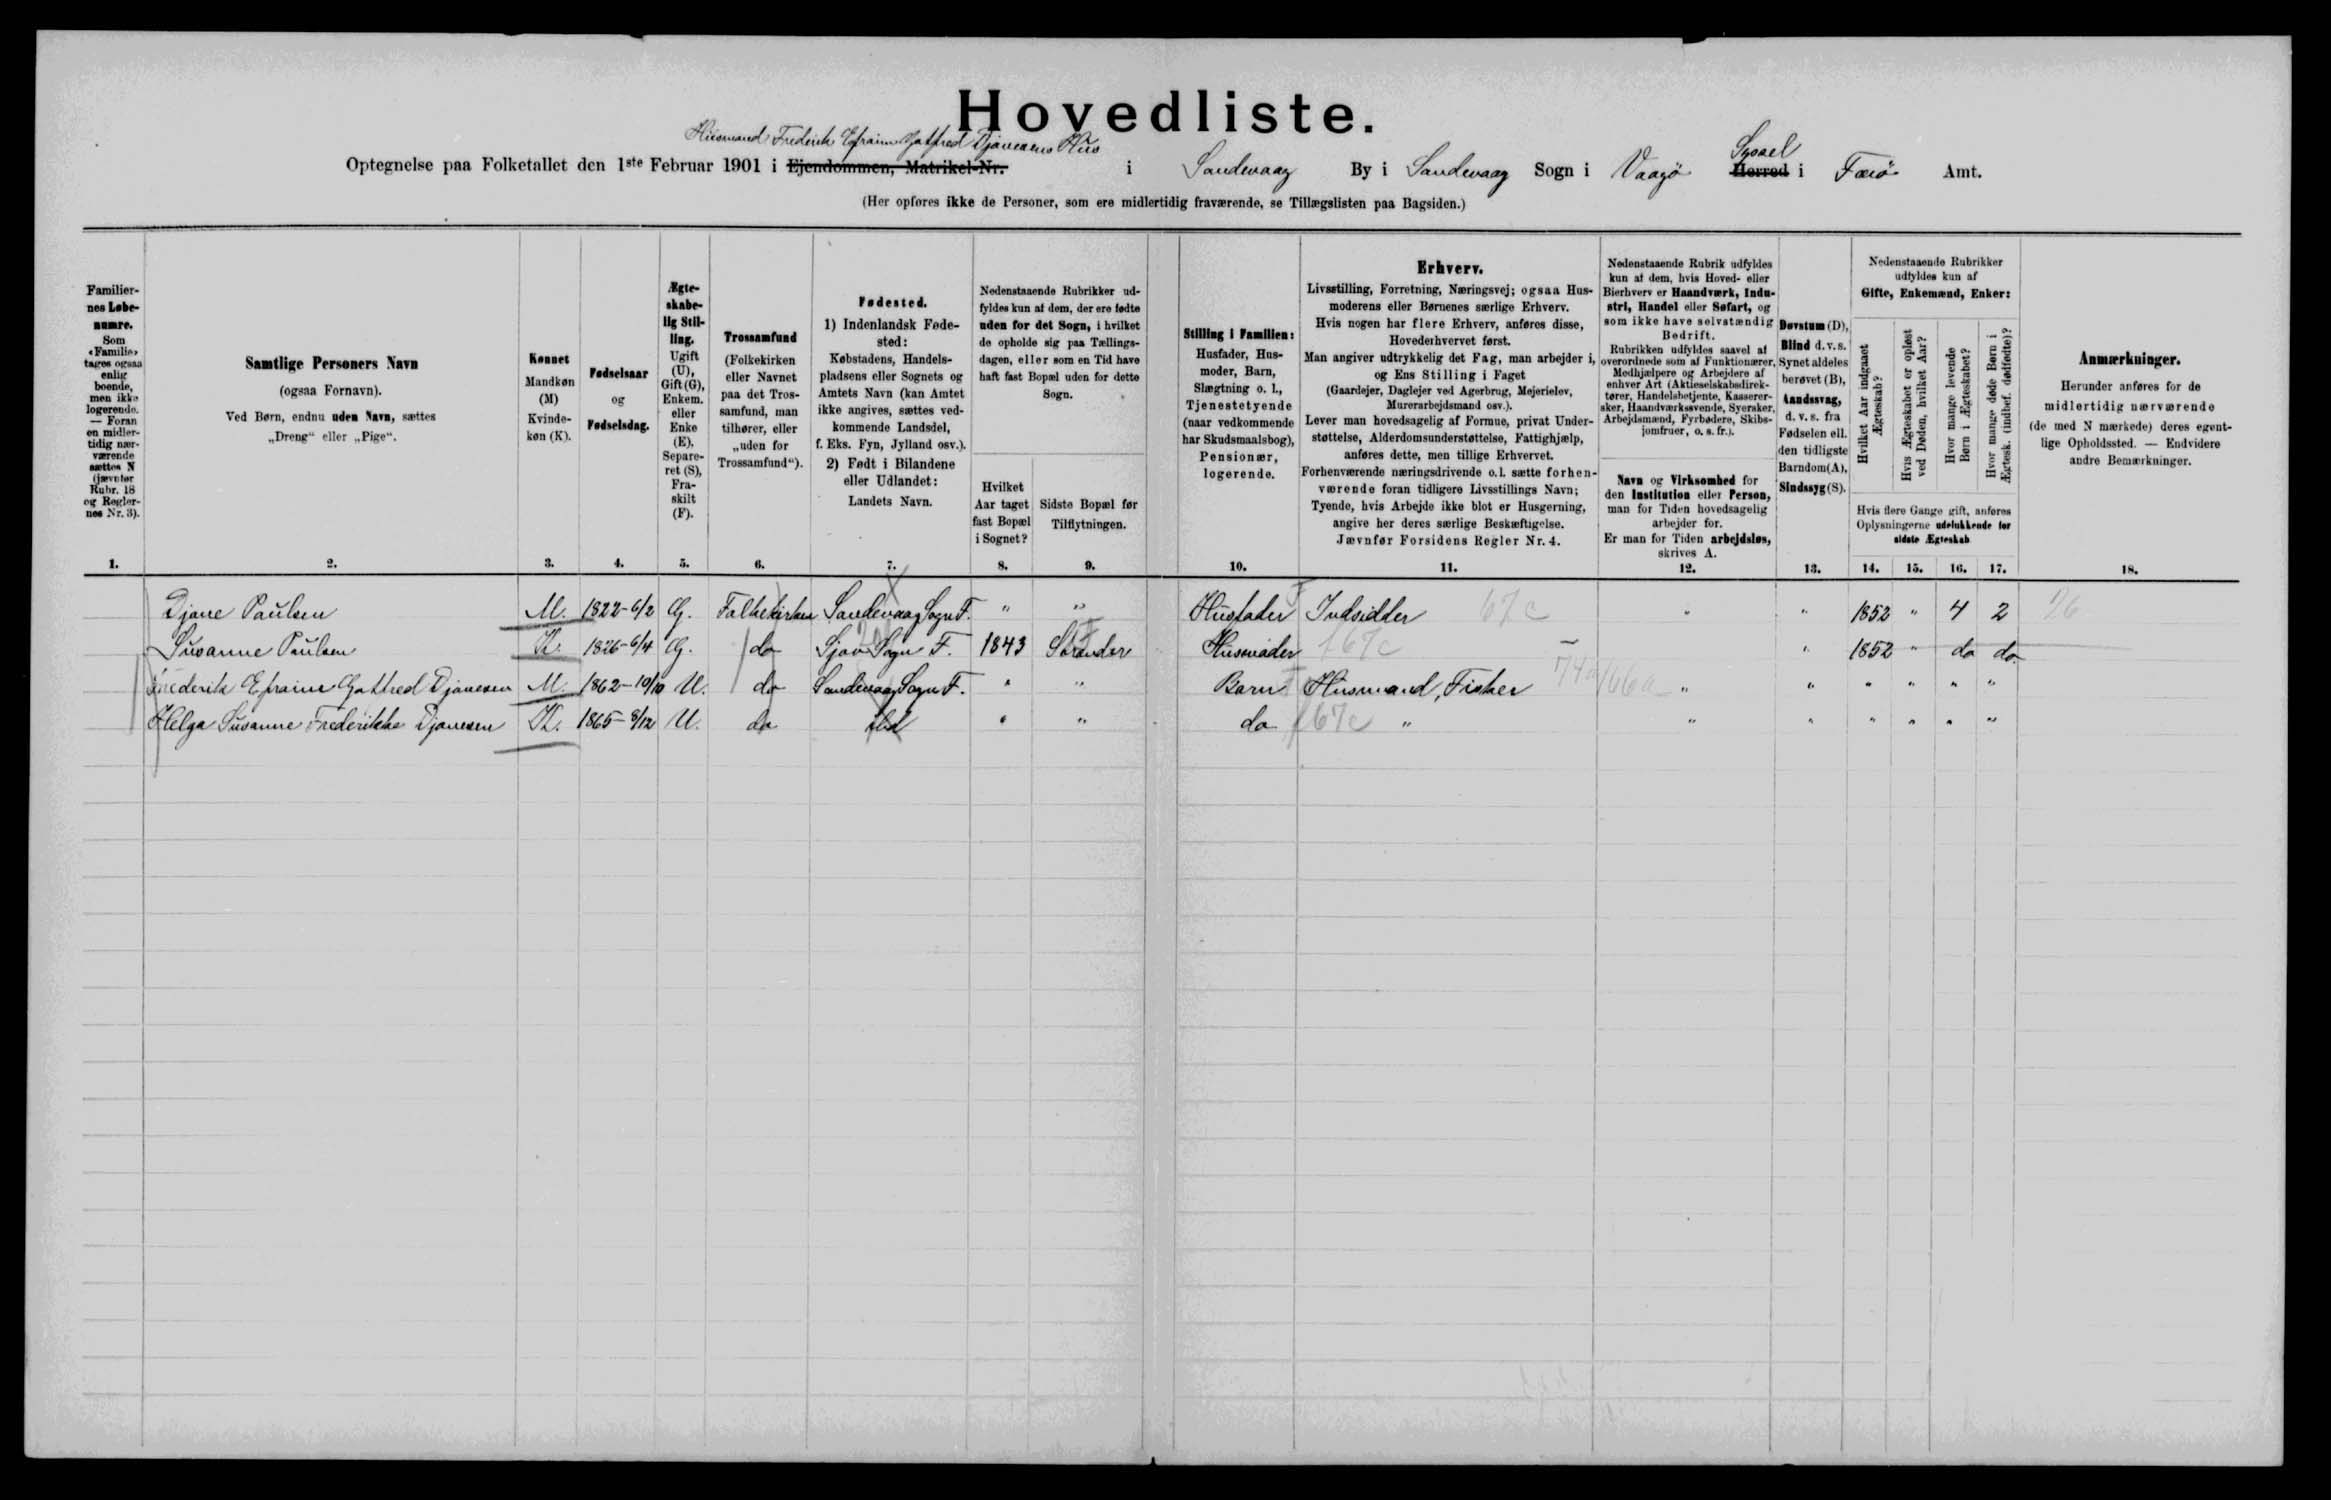 Hovedliste.
Husmand Frederik Efraim Gotfred Djonesens Hus
Optegnelse paa Folketallet den 1ste Februar 1901 i Ejendommen, Matrikel-Nr. i Sandevaag By i Sandevaag Sogn i Vaagø Herred Syssel i Færø Amt.
(Her opføres ikke de Personer, som ere midlertidig fraværende, se Tillægslisten paa Bagsiden.)
Familier-
nes Løbe-
numre.
Som
«Familie»
tages ogsaa
enlig
boende,
men ikke
logerende.
— Foran
en midler-
tidig nær-
værende
sættes N
(jævnfør
Rubr. 18
og Regler-
nes Nr. 3).
1.
Samtlige Personers Navn
(ogsaa Fornavn).
Ved Børn, endnu uden Navn, sættes
„Dreng“ eller „Pige“.
2.
Kønnet
Mandkøn
(M)
Kvinde-
køn (K).
3.
Fødselsaar
og
Fødselsdag.
4.
Ægte-
skabe-
lig Stil-
ling.
Ugift
(U),
Gift (G),
Enkem.
eller
Enke
(E),
Separe-
ret (S),
Fra-
skilt
(F).
5.
Trossamfund
(Folkekirken
eller Navnet
paa det Tros-
samfund, man
tilhører, eller
„uden for
Trossamfund“).
6.
Fødested.
1) Indenlandsk Føde-
sted:
Købstadens, Handels-
pladsens eller Sognets og
Amtets Navn (kan Amtet
ikke angives, sættes ved-
kommende Landsdel,
f. Eks. Fyn, Jylland osv.).
2) Født i Bilandene
eller Udlandet:
Landets Navn.
7.
Nedenstaaende Rubrikker ud-
fyldes kun af dem, der ere fødte
uden for det Sogn, i hvilket
de opholde sig paa Tællings-
dagen, eller som en Tid have
haft fast Bopæl uden for dette
Sogn.
Hvilket
Aar taget
fast Bopæl
i Sognet?
8.
Sidste Bopæl før
Tilflytningen.
9.
Stilling i Familien:
Husfader, Hus-
moder, Barn,
Slægtning o. l.,
Tjenestetyende
(naar vedkommende
har Skudsmaalsbog),
Pensionær,
logerende.
10.
Erhverv.
Livsstilling, Forretning, Næringsvej; ogsaa Hus-
moderens eller Børnenes særlige Erhverv.
Hvis nogen har flere Erhverv, anføres disse,
Hovederhvervet først.
Man angiver udtrykkelig det Fag, man arbejder i,
og Ens Stilling i Faget
(Gaardejer, Daglejer ved Agerbrug, Mejerielev,
Murerarbejdsmand osv.).
Lever man hovedsagelig af Formue, privat Under-
støttelse, Alderdomsunderstøttelse, Fattighjælp,
anføres dette, men tillige Erhvervet.
Forhenværende næringsdrivende o.l. sætte forhen-
værende foran tidligere Livsstillings Navn;
Tyende, hvis Arbejde ikke blot er Husgerning,
angive her deres særlige Beskæftigelse.
Jævnfør Forsidens Regler Nr. 4.
11.
Nedenstaaende Rubrik udfyldes
kun af dem, hvis Hoved- eller
Bierhverv er Haandværk, Indu-
stri, Handel eller Søfart, og
som ikke have selvstændig
Bedrift.
Rubrikken udfyldes saavel af
overordnede som af Funktionærer,
Medhjælpere og Arbejdere af
enhver Art (Aktieselskabsdirek-
tører, Handelsbetjente, Kasserer-
sker, Haandværkssvende, Syersker,
Arbejdsmænd, Fyrbødere, Skibs-
jomfruer, o. s. fr.).
Navn og Virksomhed for
den Institution eller Person,
man for Tiden hovedsagelig
arbejder for.
Er man for Tiden arbejdsløs,
skrives A.
12.
Døvstum (D),
Blind d. v. s.
Synet aldeles
berøvet (B),
Aandssvag,
d. v. s. fra
Fødselen ell.
den tidligste
Barndom (A),
Sindssyg (S).
13.
Nedenstaaende Rubrikker
udfyldes kun af
Gifte, Enkemænd, Enker:
Hvilket Aar indgaaet
Ægteskab?
Hvis Ægteskabet er opløst
ved Døden, hvilket Aar?
Hvor mange levende
Børn i Ægteskabet?
Hvor mange døde Børn i
Ægtesk. (indbef. dødfødte)?
Hvis flere Gange gift, anføres
Oplysningerne udelukkende for
sidste Ægteskab
14. 15. 16. 17.
Anmærkninger.
Herunder anføres for de
midlertidig nærværende
(de med N mærkede) deres egent-
lige Opholdssted. — Endvidere
andre Bemærkninger.
18.
Djone Paulsen M. 1822-6/2 G. Folkekirken Sandevaag Sogn F. " " Husfader Indsidder 67c " " 1852 " 4 2 26
Susanne Paulsen K. 1826-6/4 G. do Sjov Sogn F. 1843 Strander Husmoder 67c " 1852 " do do
Frederik Efraim Gotfred Djonesen M. 1862-10/10 U. do Sandevaag Sogn F. " " Barn Husmand, Fisker 74a/66a " " " " " "
Helga Susanne Frederikke Djonesen K. 1865-8/12 U. do ibd " " do 67c " " " " " " "